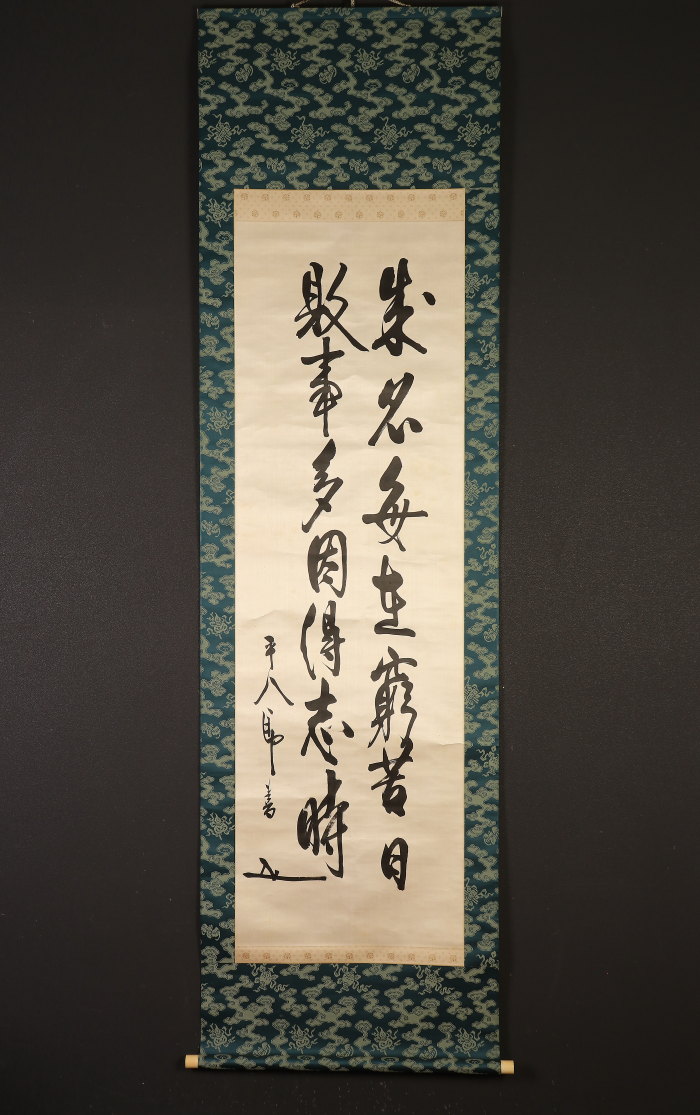 成名每在窮苦日
敗事多因得志時
平八郎書